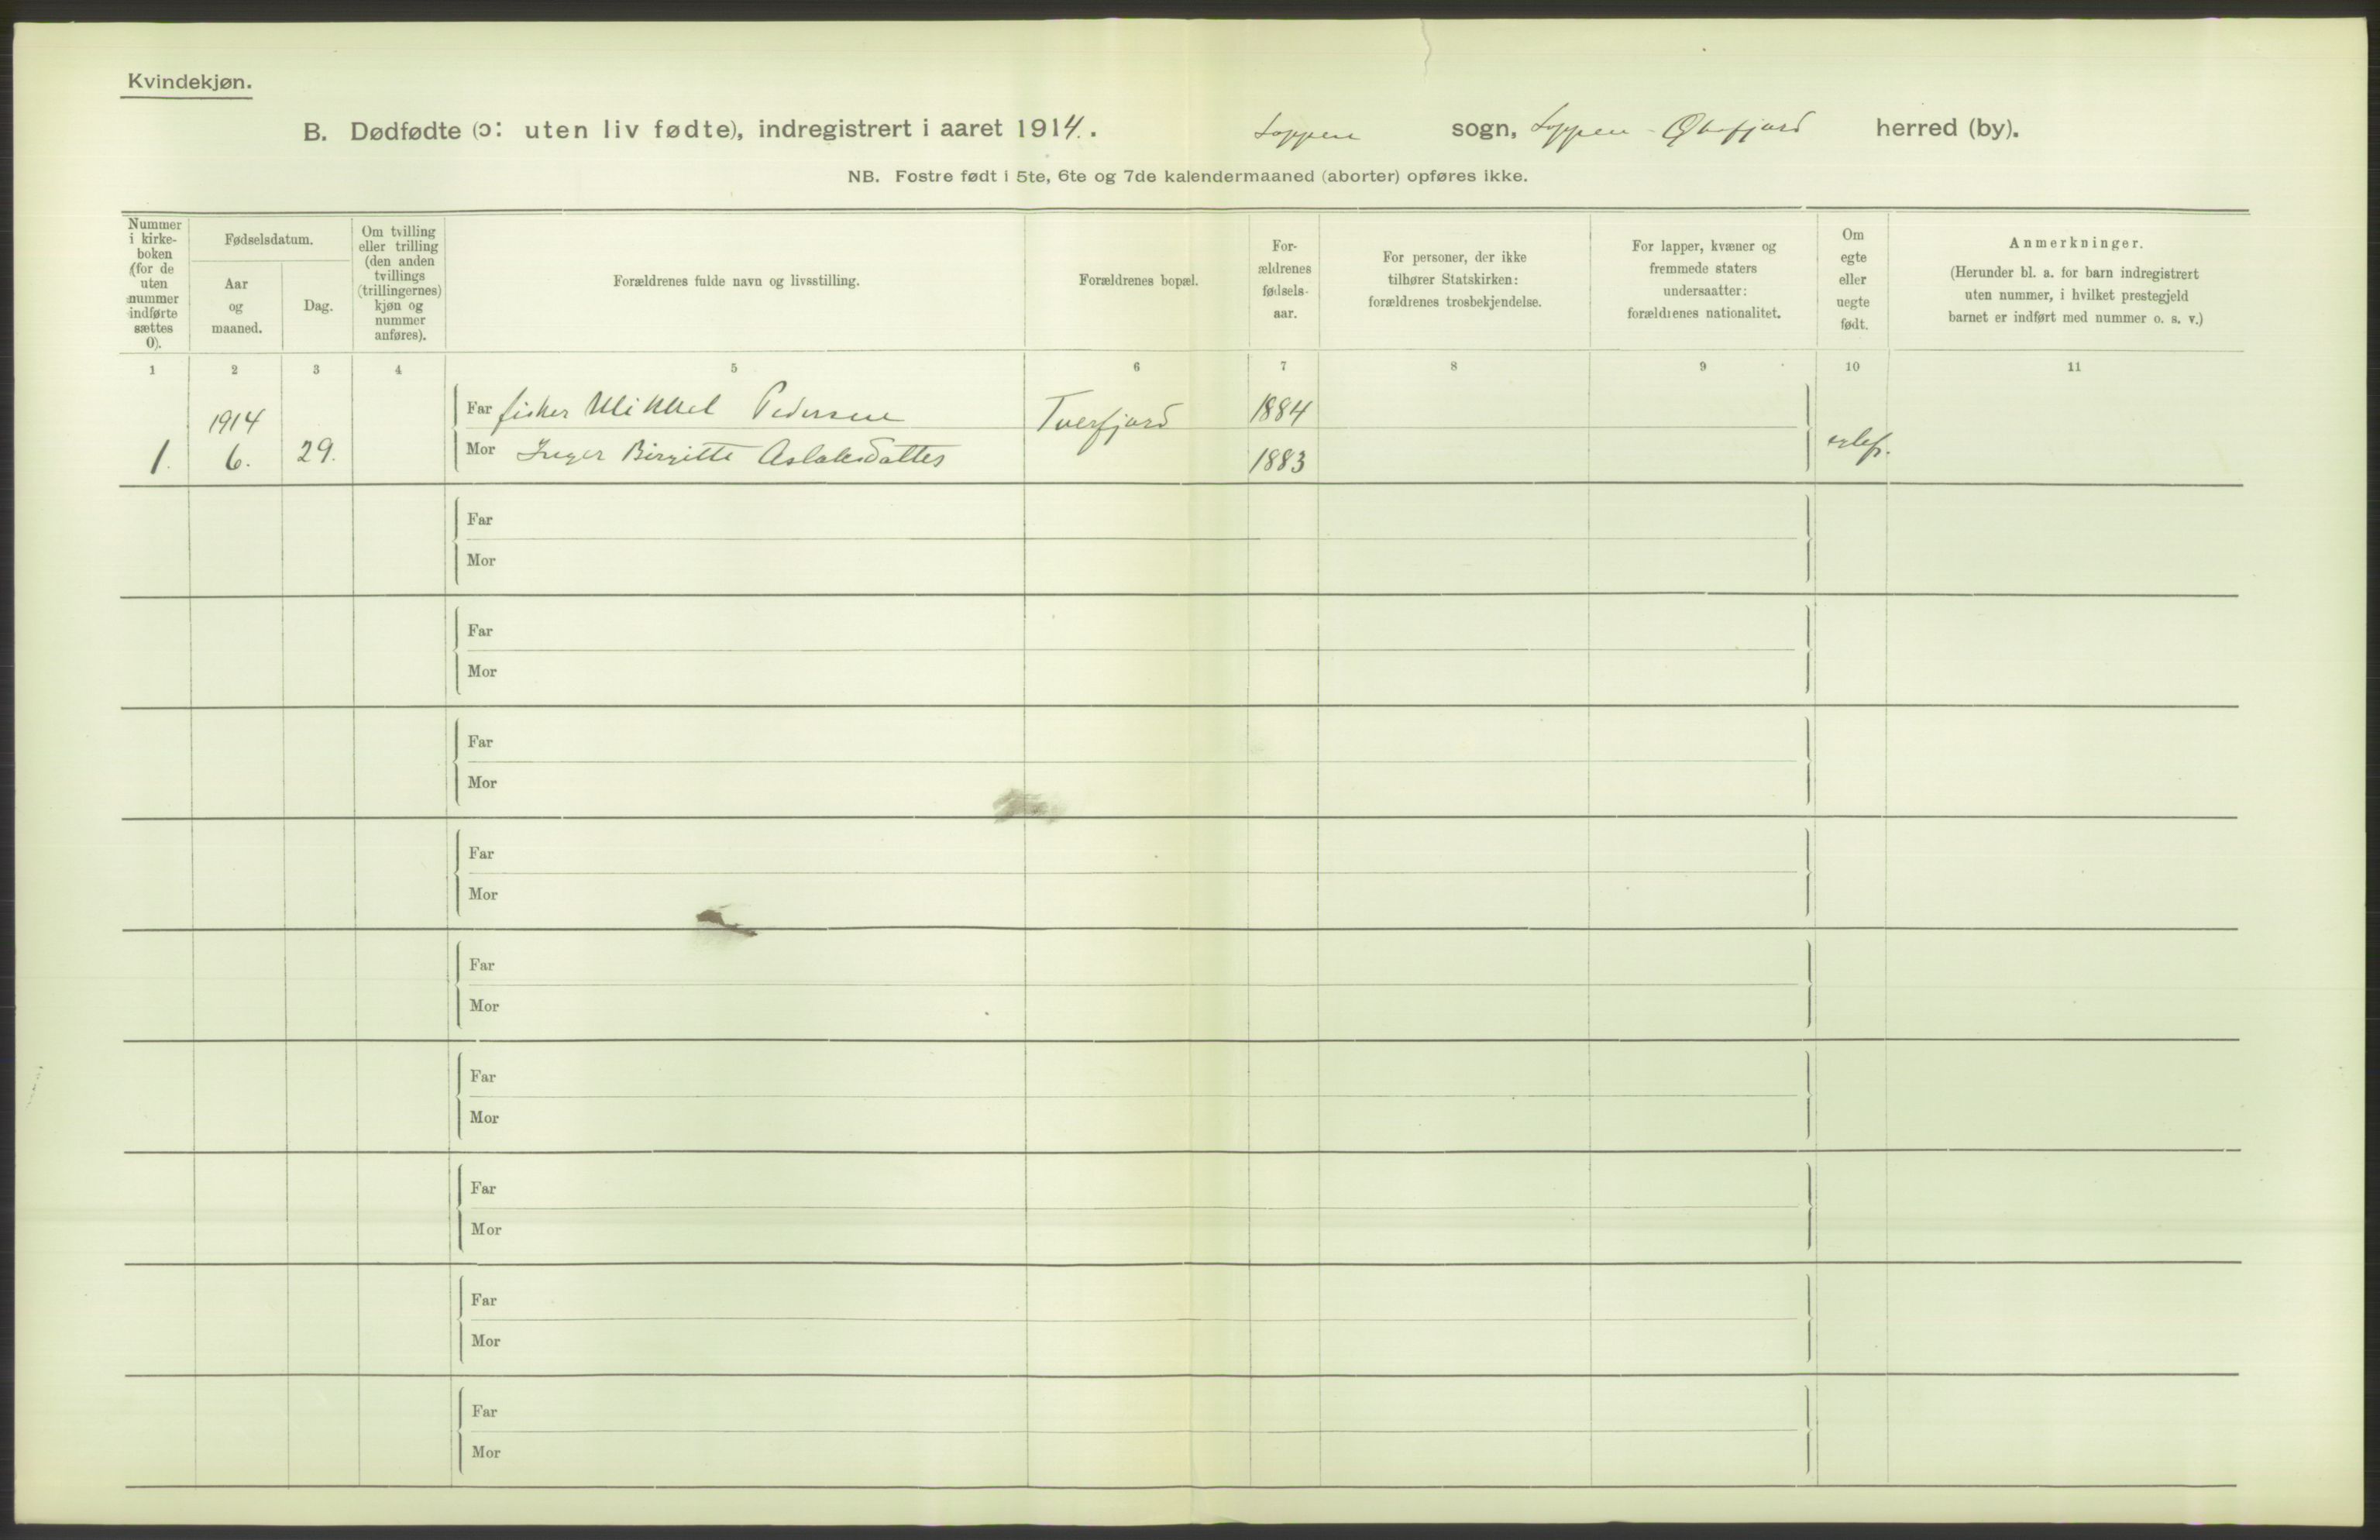 Kvindekjøn.
B. Dødfødte (ɔ: uten liv fødte), indregistrert i aaret 1914. Loppen sogn, Loppen - Øksfjord herred (by).
NB. Fostre født i 5te, 6te og 7de kalendermaaned (aborter) opføres ikke.
Nummer
i kirke-
boken
(for de
uten
nummer
indførte
sættes
0).
Fødselsdatum.
Aar
og
maaned.
Dag.
Om tvilling
eller trilling
(den anden
tvillings
(trillingernes)
kjøn og
nummer
anføres).
Forældrenes fulde navn og livsstilling.
Forældrenes bopæl.
For-
ældrenes
fødsels-
aar.
For personer, der ikke
tilhører Statskirken:
forældrenes trosbekjendelse.
For lapper, kvæner og
fremmede staters
undersaatter:
forældrenes nationalitet.
Om
egte
eller
uegte
født.
Anmerkninger.
(Herunder bl. a. for barn indregistrert
uten nummer, i hvilket prestegjeld
barnet er indført med nummer o. s. v.)
1 2 3 4 5 6 7 8 9 10 11
1914 Far fisker Mikkel Pedersen Tverfjord 1884
1. 6. 29. Mor Inger Birgitte Aslaksdatter 1883
Far
Mor
Far
Mor
Far
Mor
Far
Mor
Far
Mor
Far
Mor
Far
Mor
Far
Mor
Far
Mor